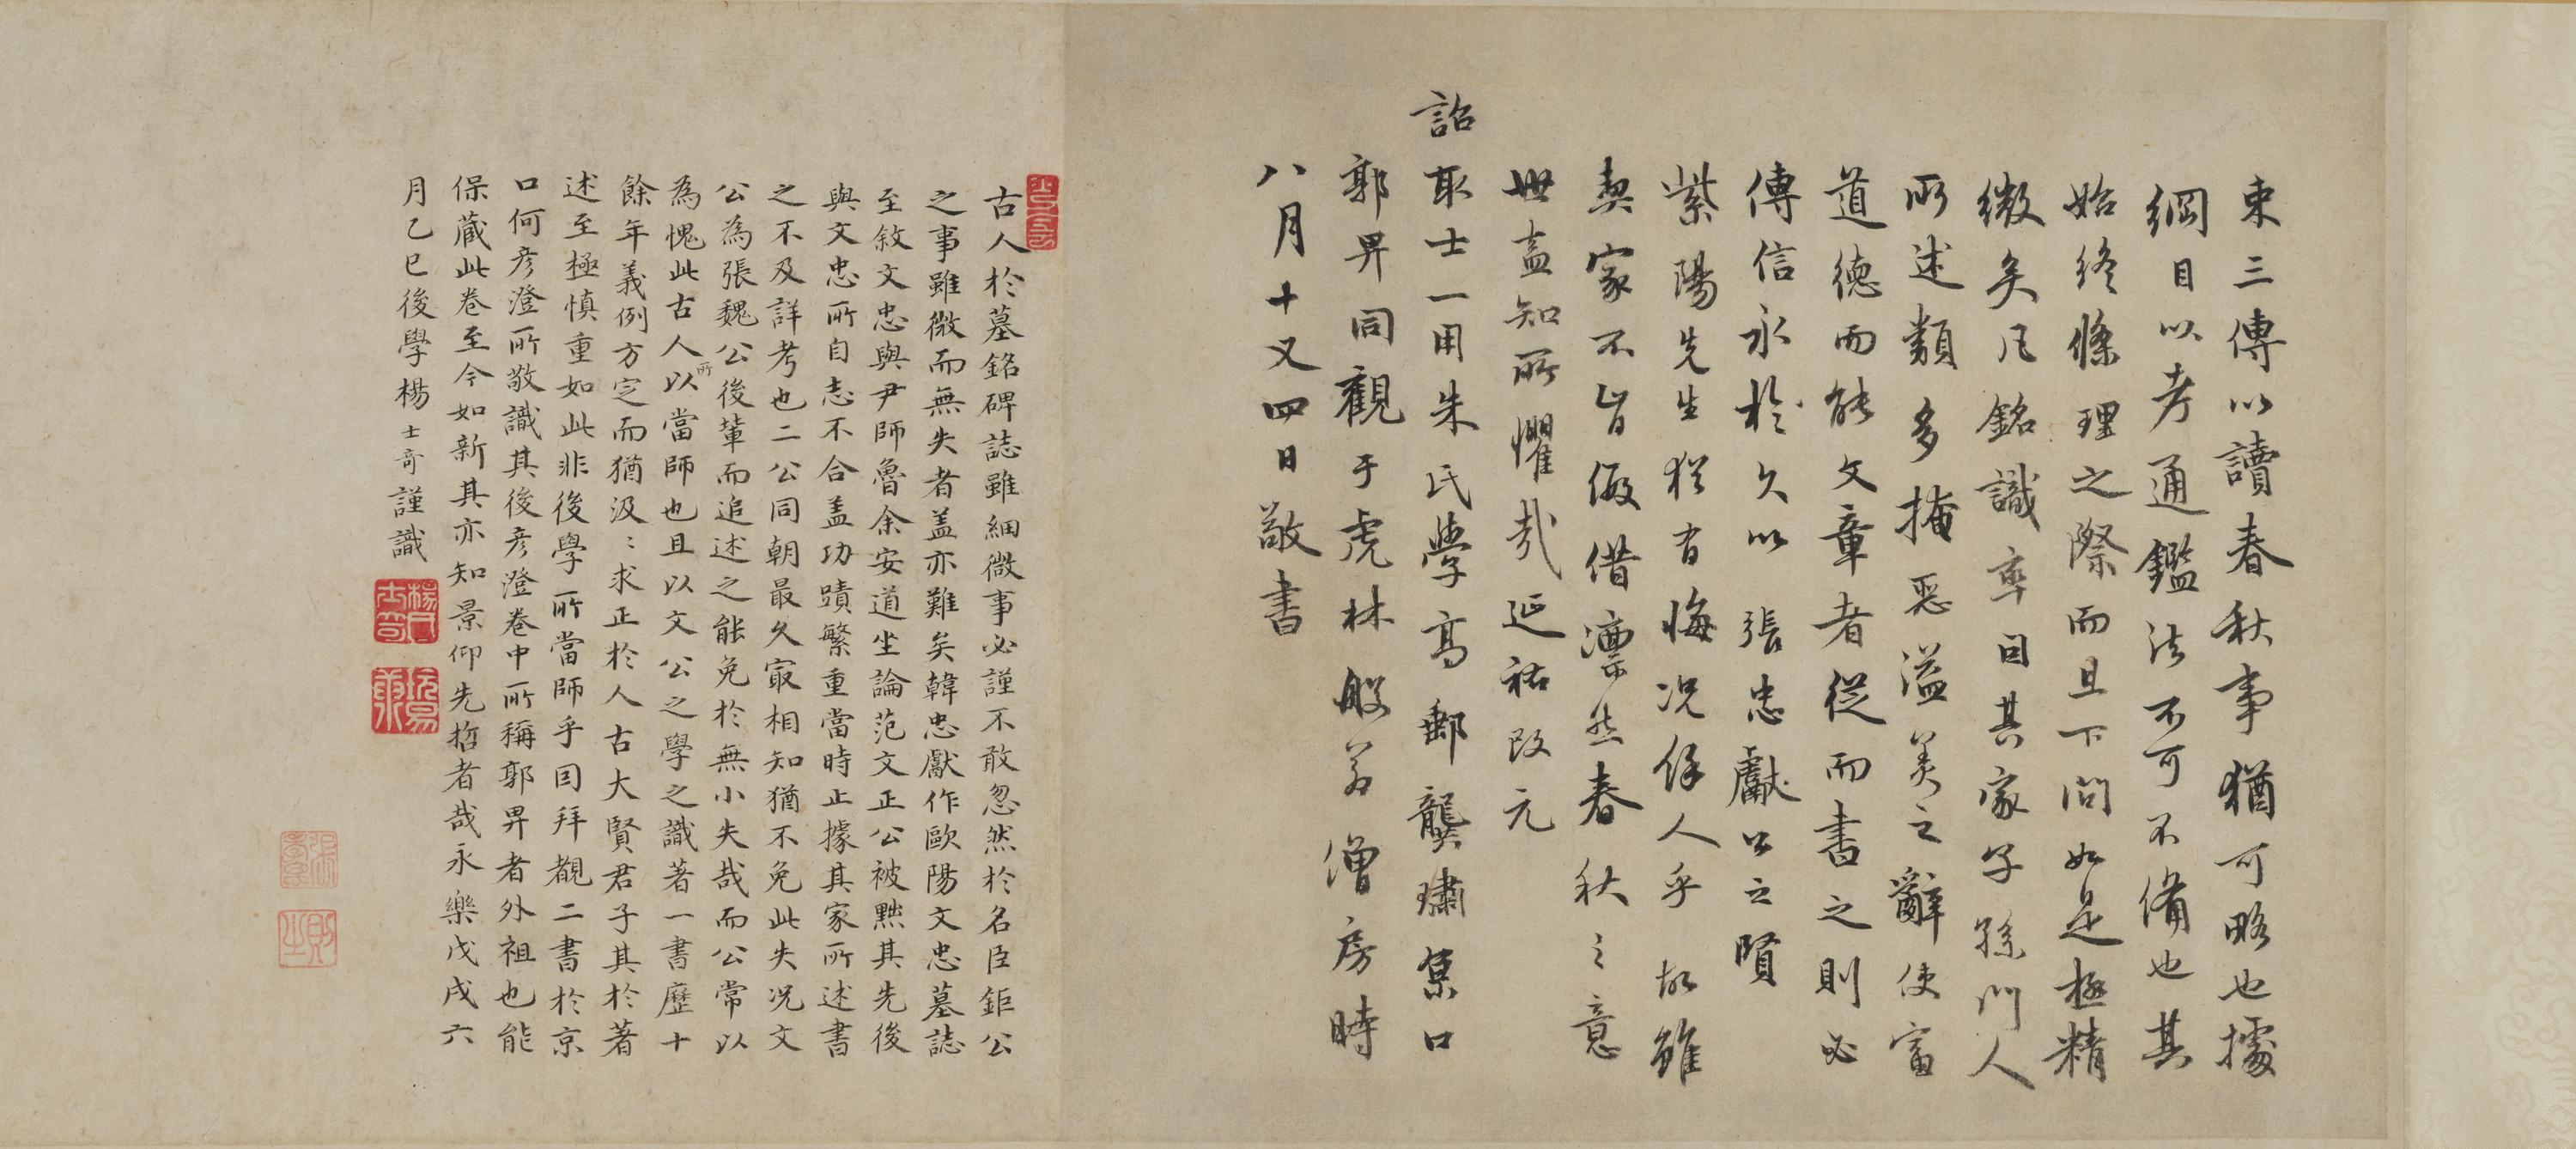 束三傳以讀春秋事猶可略也據
綱目以考通鑑法不可不備也其
始終條理之際而且下問如是極精
微矣凡銘識率因其家子孫門人
所述類多掩惡溢美之辭使富
道德而能文章者從而書之則必
傳信永於久以張忠獻公之賢
紫陽先生猶有悔況係人乎故雖
契家不皆假借凜然春秋之意
世盍知所懼哉延祐改元
詔取士一用朱氏學高郵龔璛集口
郭畀同觀于虎林般若僧房時
八月十又四日敬書
古人於墓銘碑誌雖細微事必謹不敢忽然於名臣鉅公
之事雖微而無失者蓋亦難矣韓忠獻作歐陽文忠墓誌
至敘文忠與尹師魯余安道坐論范文正公被黜其先後
與文忠所自志不合蓋功蹟繁重當時止據其家所述書
之不及詳考也二公同朝最久寂相知猶不免此失況文
公為張魏公後輩而追述之能免於無小失哉而公常以
為愧此古人所以當師也且以文公之學之識著一書歷十
餘年義例方定而猶汲〻求正於人古大賢君子其於著
述至極慎重如此非後學所當師乎因拜觀二書於京
口何彥澄所敬識其後彥澄卷中所稱郭畀者外祖也能
保藏此卷至今如新其亦知景仰先哲者哉永樂戊戌六
月乙巳後學楊士奇謹識
楊士奇